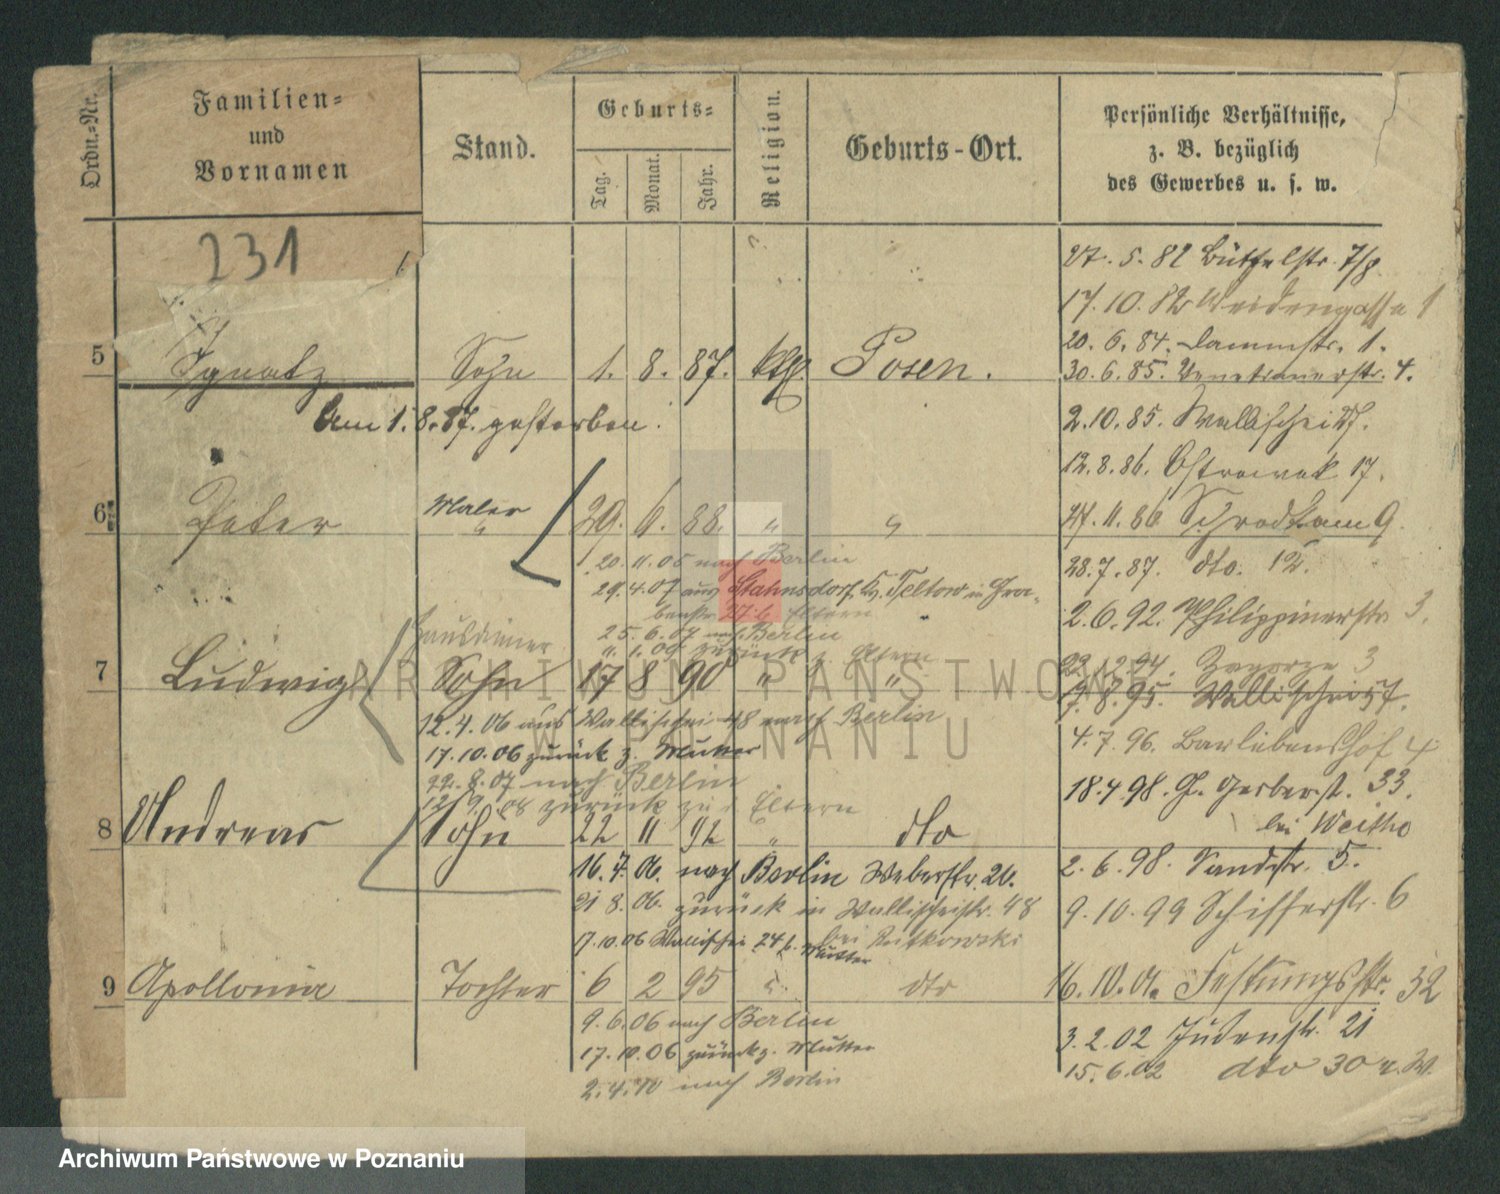 Ordn.-Nr.
Familien-
und
Vornamen
Stand.
Geburts-
Tag.
Monat.
Jahr.
Religion.
Geburts-Ort.
Persönliche Verhältnisse,
z. B. bezüglich
des Gewerbes u. s. w.
231
5 Ignatz Sohn 1. 8. 87. kth. Posen.
Am 1.8.87. gestorben.
6 Peter Maler 29. 6. 88. " "
"
1. 20.11.05 nach Berlin
29.4.07 aus Stahnsdorf, K. Teltow in Gra-
benstr. 27 b. Eltern
25.6.07 nach Berlin
zurück z. Eltern
Hausdiener
7 Ludwig Sohn 17 8 90 " "
12.4.06 aus Wallischei 48 nach Berlin
17.10.06 zurück z. Mutter
22.8.07 nach Berlin
zurück zu d Eltern
8 Andreas Sohn 22 11 92 " dto
16.7.06. nach Berlin Weberstr. 26.
21 8.06. zurück in Wallischeistr. 48
bei Ratkowski
17.10.06 Wallischei 24 b. Mutter
9 Apollonia Tochter 6 2 95 " dto
9.6.06 nach Berlin
17.10.06 zurück z. Mutter
2.4.10 nach Berlin
27.5.82 Büttelstr. 7/8
17.10.82 Weidengasse 1
20.6.84. Dammstr. 1.
30.6.85. Venetianerstr. 4.
2.10.85. Wallischei 27.
12.8.86. Ostrowek 17.
27.11.86 Schrodkam 9.
28.7.87. dto. 12.
2.6.92. Philippinerstr 3.
22.12.94. Zagorze 3
9.8.95. Wallischei 57.
4.7.96. Barlebenshof 4
18.4.98. Gr. Gerberst. 33.
bei Weitho
2.6.98. Sandstr. 5.
9.10.99 Schifferstr. 6
16.10.01. Festungsstr. 32
3.2.02 Judenstr. 21
15.6.02 dto 30 n.W.
ARCHIWUM PAŃSTWOWE
W POZNANIU
Archiwum Państwowe w Poznaniu